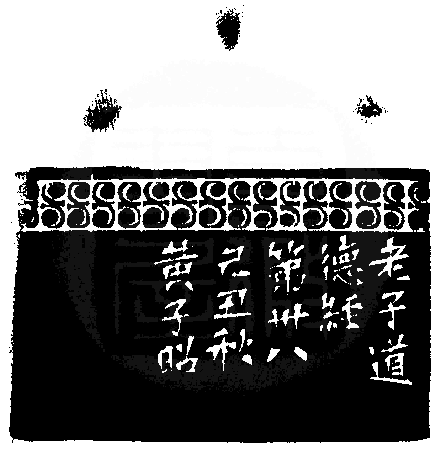 老子道
德經
第卅八
己丑秋
黄子昭